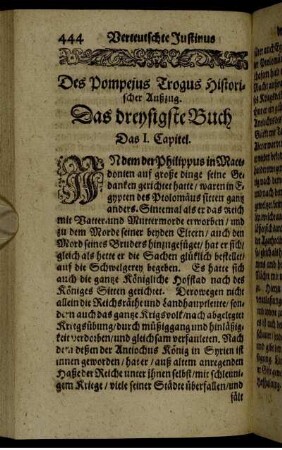 444 Verteutschte Justinus
Des Pompejus Trogus Histori-
scher Außzug.
Das dreysigste Buch
Das I. Capitel.
INdem der Philippus in Mace-
donien auf große dinge seine Ge-
danken gerichtet hatte / waren in E-
gypten des Ptolomäus sitten gantz
anders. Sintemal als er das reich
mit Vatter- und Muttermorde erworben / und
zu dem Morde seiner beyden Eltern / auch den
Mord seines Bruders hinzugefüget / hat er sich /
gleich als hette er die Sachen glüklich bestellet /
auf die Schwelgerey begeben. Es hatte sich
auch die gantze Königliche Hofstad nach des
Königes Sitten gerichtet. Derowegen nicht
allein die Reichsräthe und Landhauptleute / son-
dern auch das gantze Krigsvolk / nach abgelegter
Kriegsübung / durch müßiggang und hinläßig-
keit verdorben / und gleichsam verfauleten. Nach
dem deßen der Antiochus König in Syrien ist
innen geworden / hat er / auß altem anregenden
Haße der Reiche unter ihnen selbst / mit schleuni-
gem Kriege / viele seiner Städte überfallen / und
fält